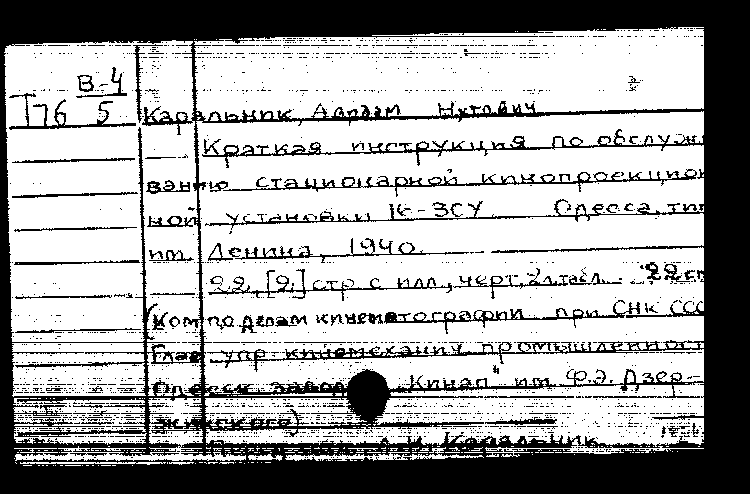 В-4
Т76 5
Каральник, Абрам Нутович
Краткая инструкция по обслужи
ванию стационарной кинопроекцион
ной установки К-ЗСУ Одесса, тип
им. Ленина, 1940.
22, [2] стр с илл., черт, 2 л. табл. 22 см
(Ком по делам кинематографии при СНК ССС
Глав упр киномеханич промышленност
Одесск завод "Кинап" им Ф.Э. Дзер-
жинского)
Перед загл. А.Н. Каральник